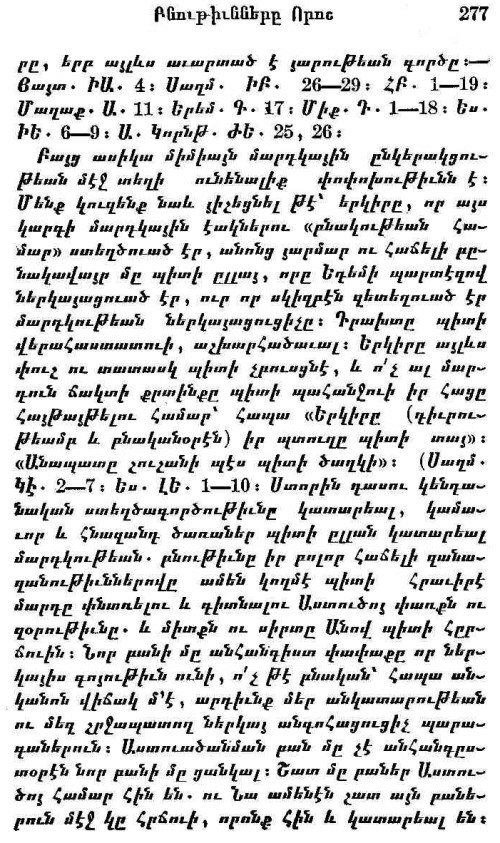 Բնութիւնները Որոշ 277
րը, երբ այլևս աւարտած է յարութեան գործը։—
Յայտ. ԻԱ. 4։ Սաղմ. ԻԲ. 26—29։ ՀԲ. 1—19։
Մաղաք. Ա. 11։ Երեմ. Գ. 17։ Միք. Դ. 1—18։ Ես.
ԻԵ. 6—9։ Ա. Կորնթ. ԺԵ. 25, 26։
Բայց ասիկա միմիայն մարդկային ընկերակցու-
թեան մէջ տեղի ունենալիք փոփոխութիւնն է։
Մենք կուզենք նաև յիշեցնել թէ՝ երկիրը, որ այս
կարգի մարդկային էակներու «բնակութեան հա-
մար» ստեղծուած էր, անոնց յարմար ու հաճելի բը-
նակավայր մը պիտի ըլլայ, որը Եդեմի պարտէզով
ներկայացուած էր, ուր որ սկիզբէն զետեղուած էր
մարդկութեան ներկայացուցիչը։ Դրախտը պիտի
վերահաստատուի, աշխարհածաւալ։ Երկիրը այլևս
փուշ ու տատասկ պիտի չբուսցնէ, և ո՛չ ալ մար-
դուն ճակտի քրտինքը պիտի պահանջուի իր հացը
հայթայթելու համար՝ հապա «Երկիրը (դիւրու-
թեամբ և բնականօրէն) իր պտուղը պիտի տայ»։
«Անապատը շուշանի պէս պիտի ծաղկի»։ (Սաղմ.
ԿԷ. 2—7։ Ես. ԼԵ. 1—10։ Ստորին դասու կենդա-
նական ստեղծագործութիւնը կատարեալ, կամա-
ւոր և հնազանդ ծառաներ պիտի ըլլան կատարեալ
մարդկութեան. բնութիւնը իր բոլոր հաճելի զանա-
զանութիւններովը ամեն կողմէ պիտի հրաւիրէ
մարդը փնտռելու և գիտնալու Աստուծոյ փառքն ու
զօրութիւնը. և միտքն ու սիրտը Անով պիտի հըր-
ճուին։ Նոր բանի մը անհանգիստ փափաքը որ ներ-
կայիս գոյութիւն ունի, ո՛չ թէ բնական՝ հապա ան-
կանոն վիճակ մ՚է, արդիւնք մեր անկատարութեան
ու մեզ շրջապատող ներկայ անգոհացուցիչ պարա-
գաներուն։ Աստուածանման բան մը չէ անհանգըս-
տօրէն նոր բանի մը ցանկալ։ Շատ մը բաներ Աստու-
ծոյ համար հին են. ու Նա ամենէն շատ այն բանե-
րուն մէջ կը հրճուի, որոնք հին և կատարեալ են։